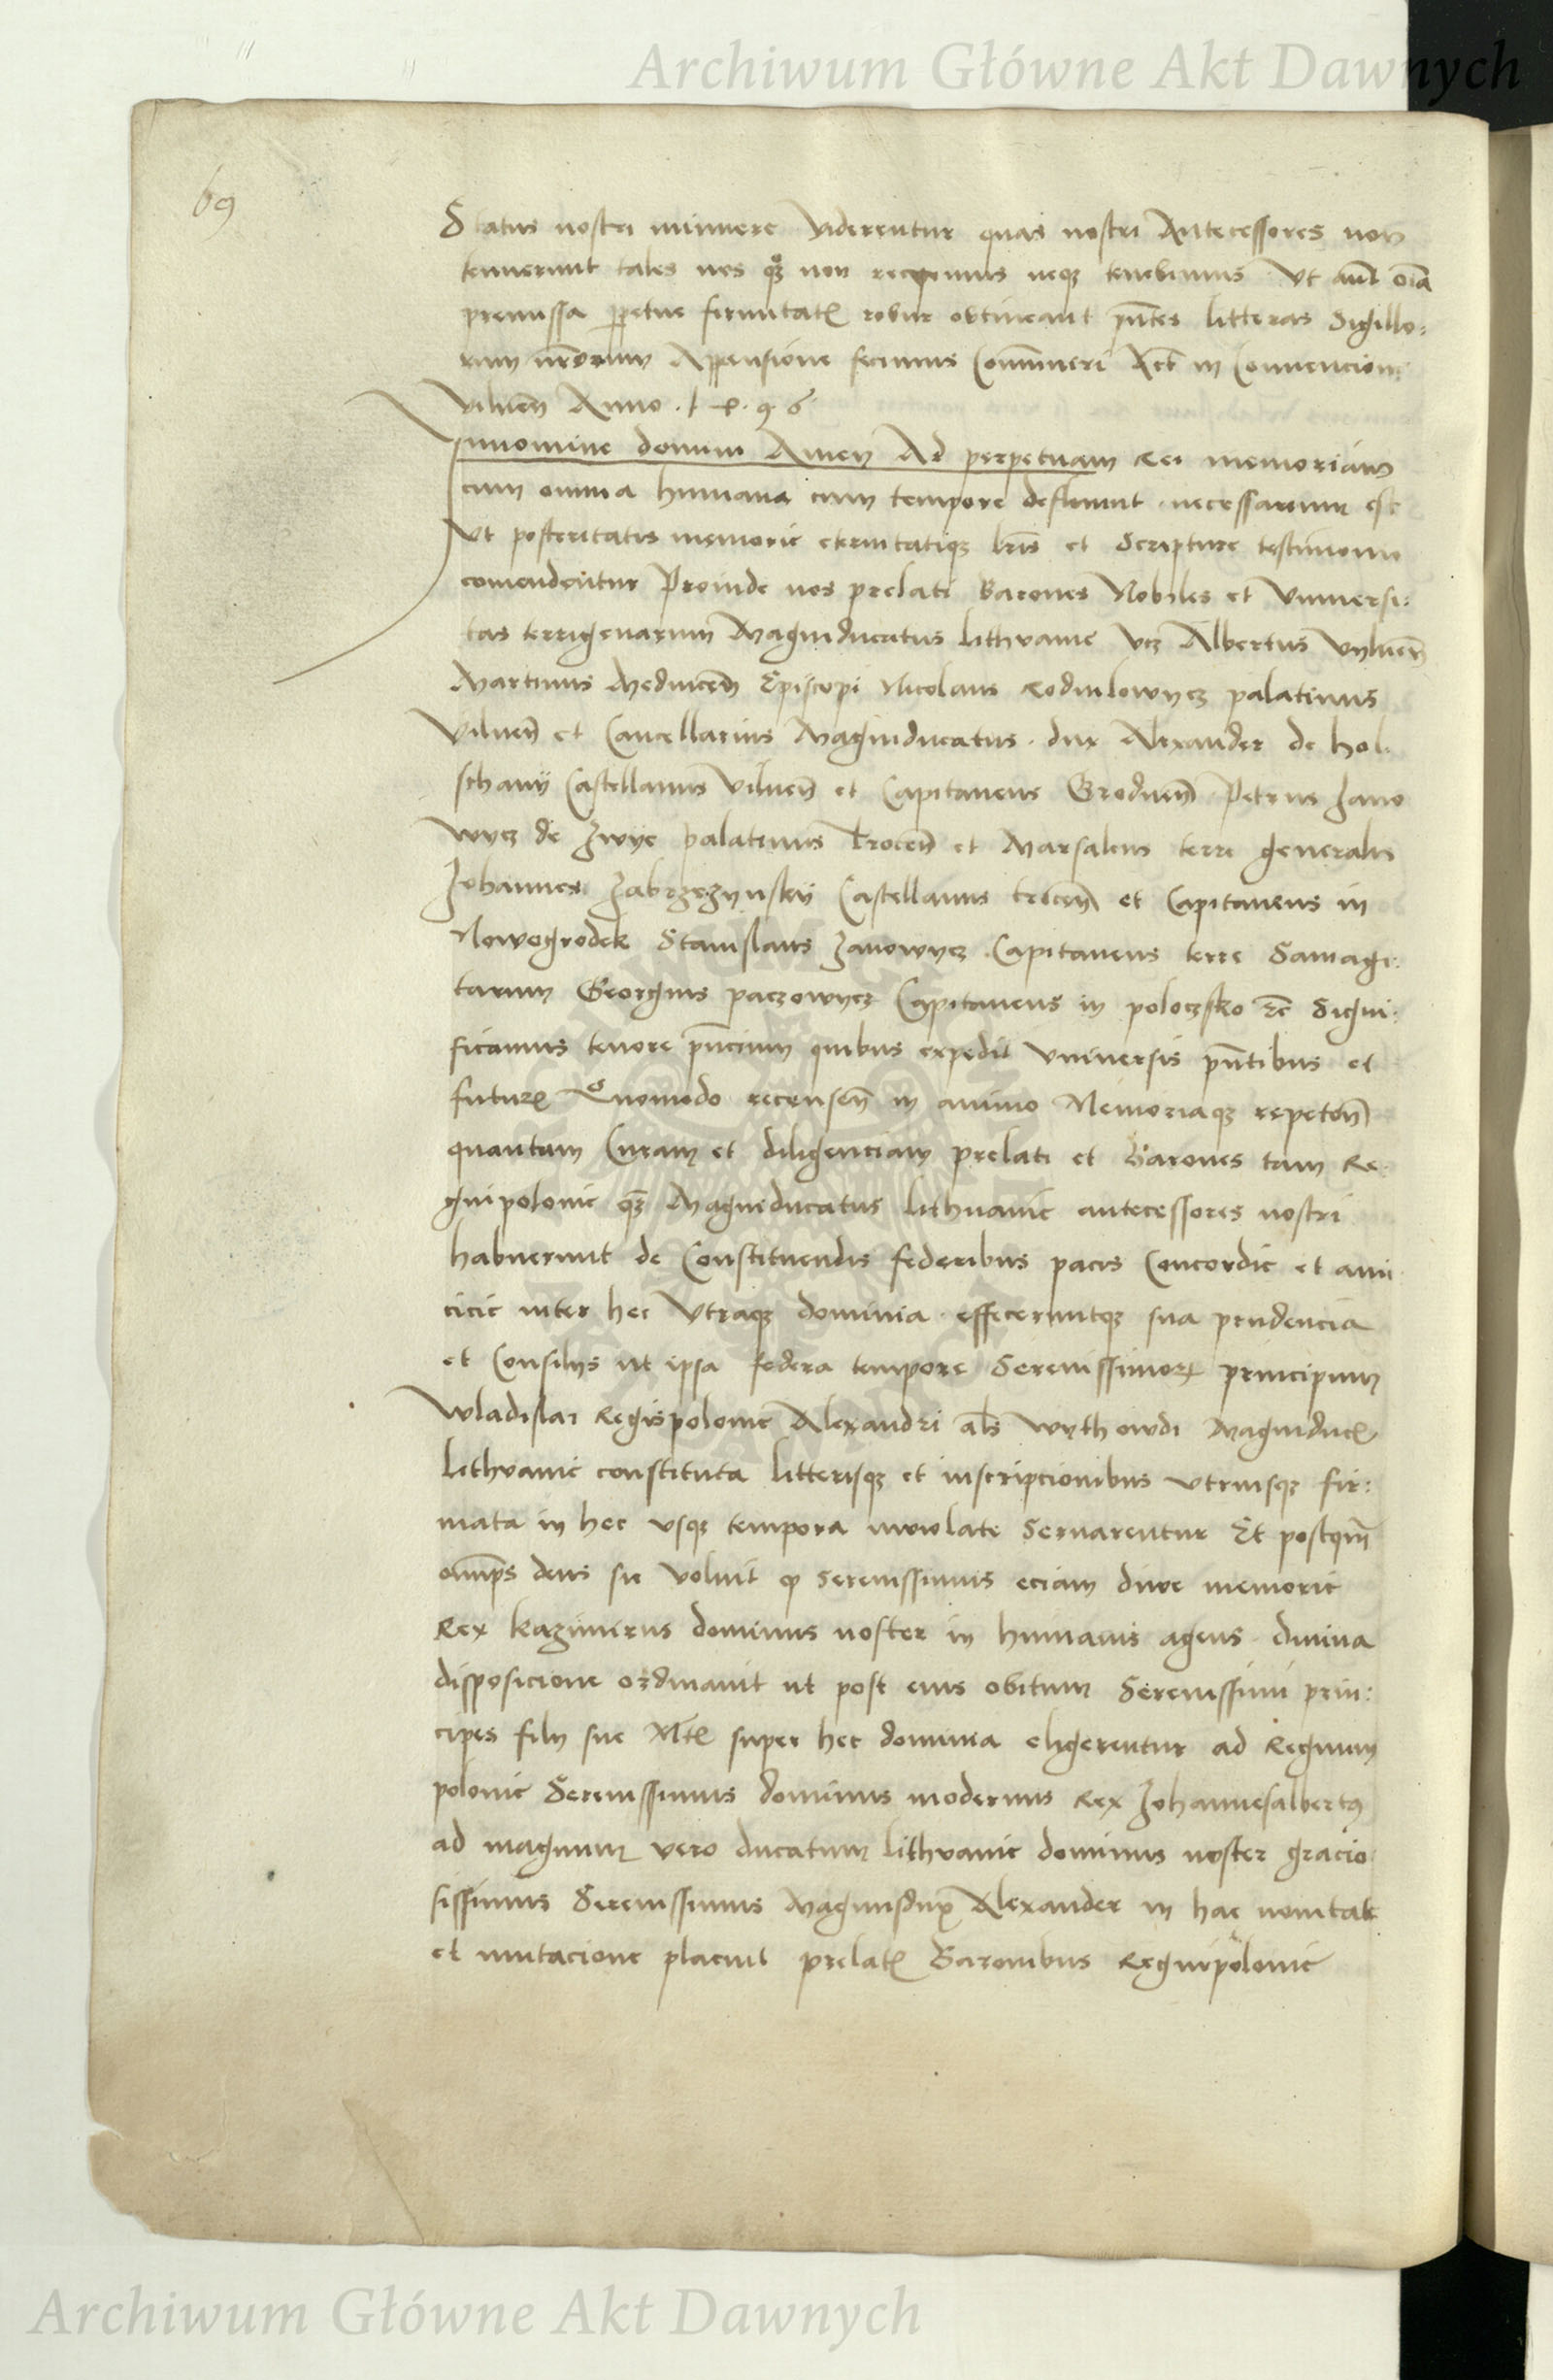 Archiwum Główne Akt Dawnych
69
Status nostri minuere viderentur quas nostri Antecessores non
tenuerunt tales nos qz non recipimus neqz tenebimus Vt aut oia
premissa ppetue firmitatis robur obtineant pntes litteras Sigillo:
rum nrorum Appensione fecimus Communeri Act in Convencione
Vilnen Anno
Innomine domini Amen Ad perpetuam Rei memoriam
cum omnia humana cum tempore defluunt necessarium est
Vt posteritatis memorie eternitatiqz lris et Scripture testimonio
comendentur Proinde nos prelati Barones Nobiles et Vniversi:
tas terrigenarum Magniducatus Lithvanie vcz Albertus Vylnen
Martinus Mednicen Episcopi Nicolaus Rodinilowycz palatinus
Vilnen et Cancellarius Magniducatus dux Alexander de hol:
schany Castellanus Vilnen et Capitaneus Grodnen Petrus Jano
wycz de Zwye palatinus Trocen et Marsalcus terre generalis
Johannes Zabrzezynsky Castellanus trocen et Capitaneus in
Nowogrodek Stanislaus Janowycz Capitaneus terre Samagi:
tarum Georgius paczowycz Capitaneus in poloczsko Ec Signi:
ficamus tenore pncium quibus expedit vniversis pntibus et
futuris Quomodo recensen in animo Memoriaqz repeten
quantam Curam et diligenciam prelati et Barones tam Re
gnipolonie qz Magniducatus Lithuanie antecessores nostri
habuerunt de Constituendis federibus pacis Concordie et ami
cicie inter hec Vtraqz dominia effeceruntqz sua prudencia
et Consilys ut ipsa federa tempore Serenissimor principum
Wladislai Regispolonie Alexandri als Wythowdi Magniducis
Lithvanie constituta litterisqz et inscripcionibus vtriusqz fir:
mata in hec vsqz tempora inviolate Servarentur Et postqm
omps deus sic voluit q Serenissimus eciam dive memorie
Rex kazimirus dominus noster in humanis agens divina
disposicione ordinavit ut post eius obitum Serenissimi prin:
cipes filii sue Mtis super hec dominia eligerentur ad Regnum
polonie Serenissimus dominus modernus Rex Johannesalbertus
ad magnum vero ducatum Lithvanie dominus noster gracio
sissimus Serenissimus Magnusdux Alexander in hac novitate
et mutacione placuit prelatis Baronibus Regnipolonie
Archiwum Główne Akt Dawnych